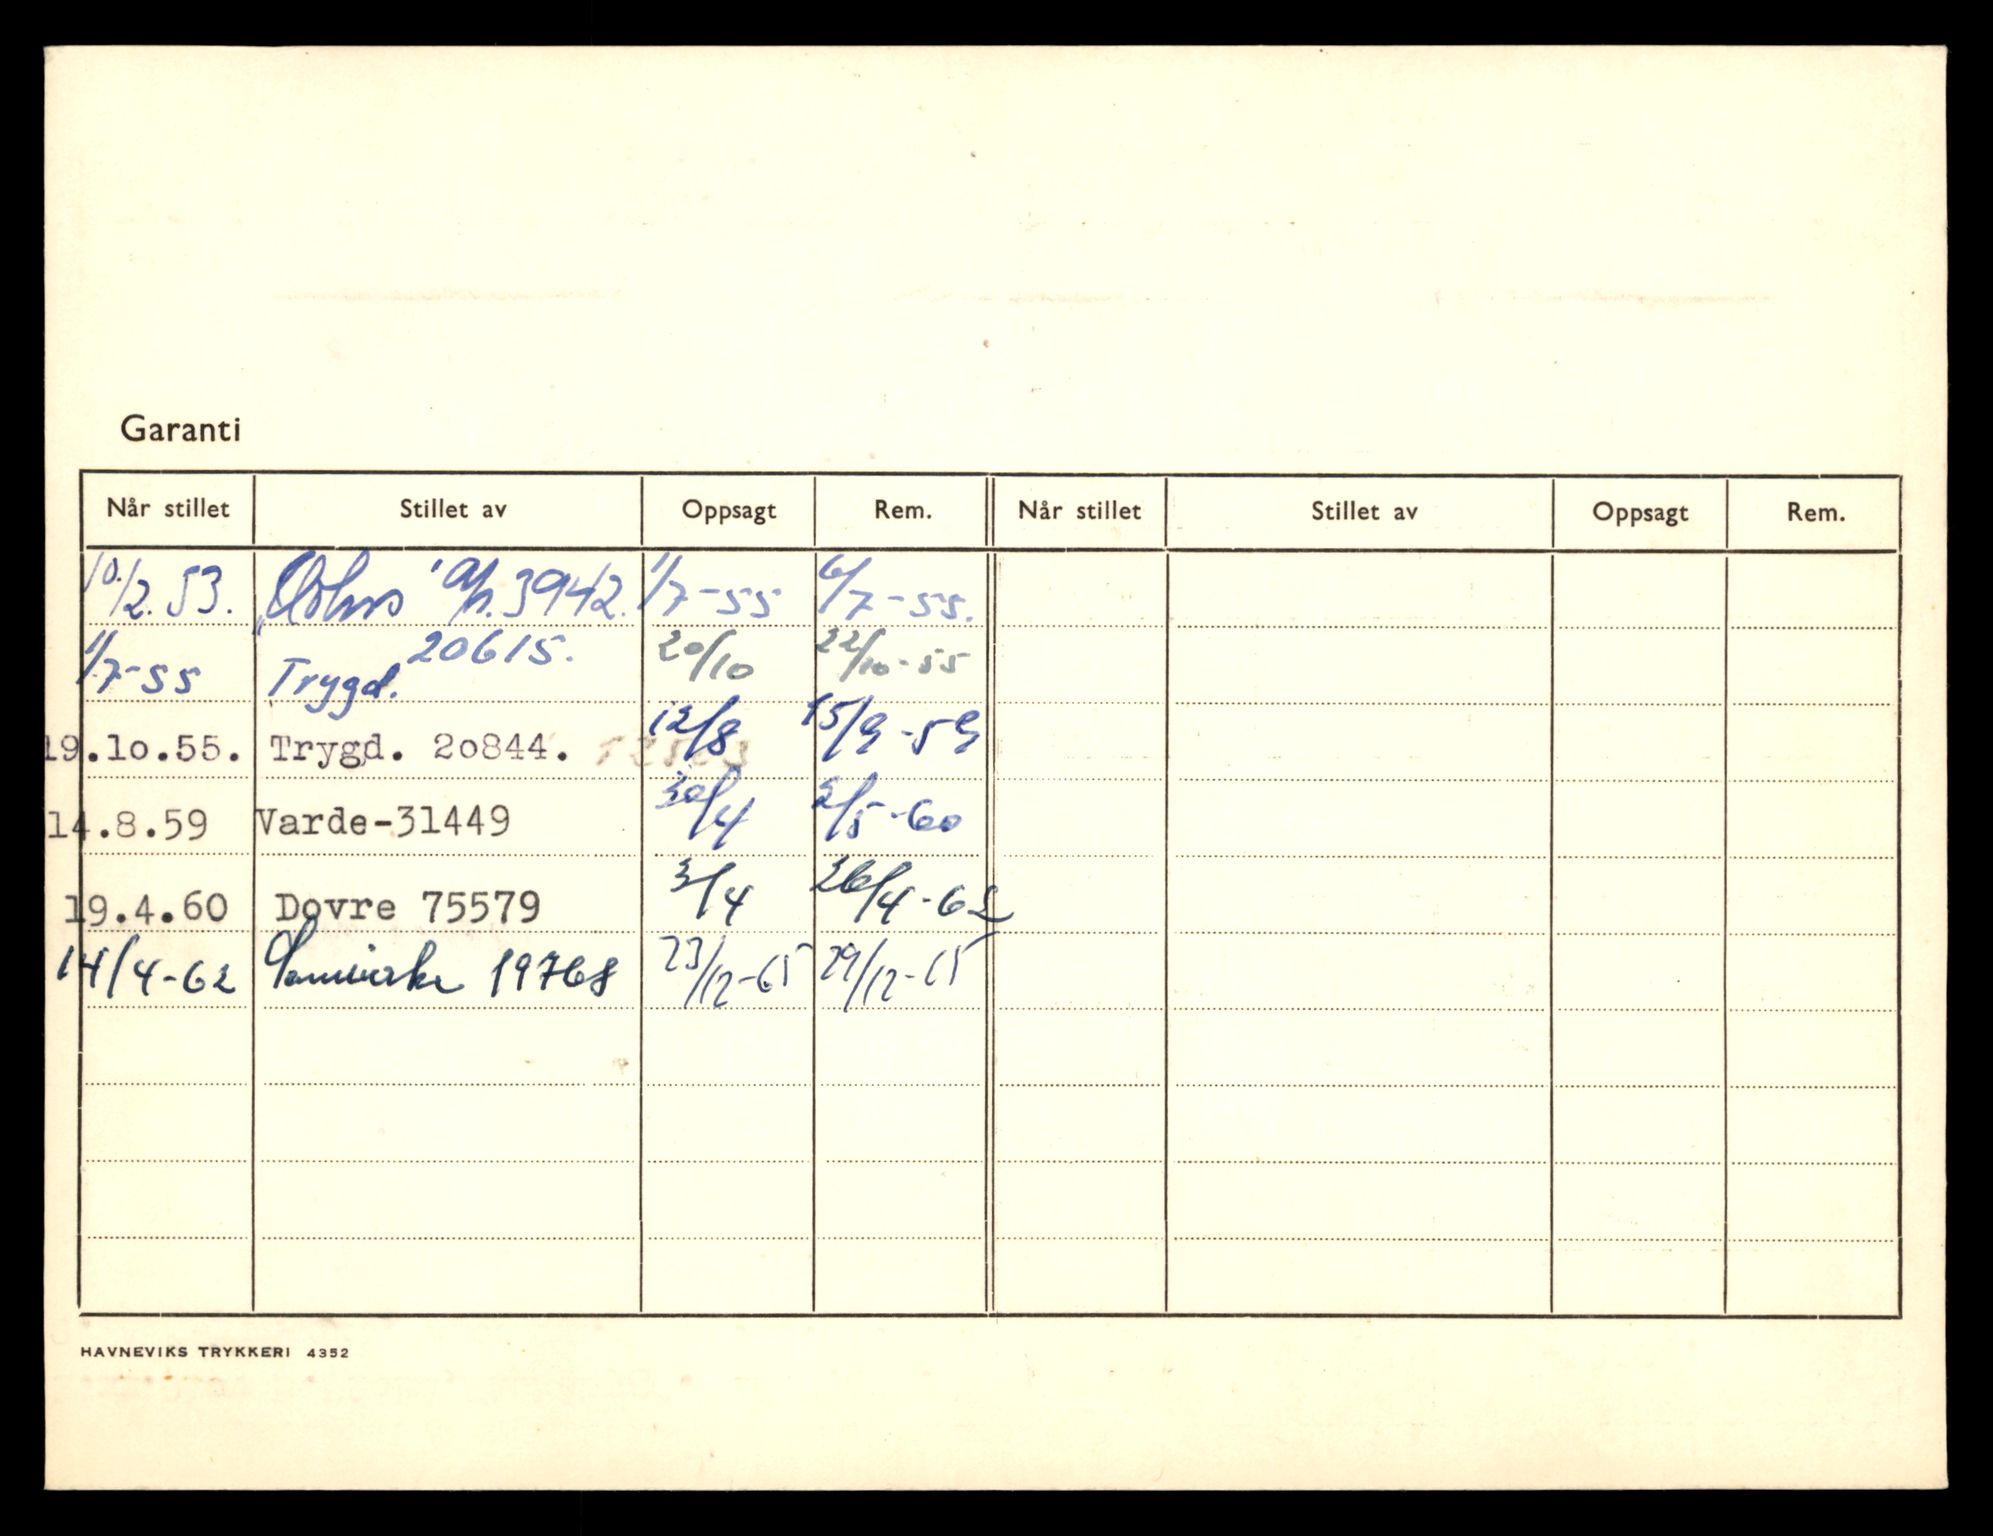 Garanti
Når stillet Stillet av Oppsagt Rem. Når stillet Stillet av Oppsagt Rem.
10/2. 53. 3942. 1/7-55 6/7-55.
1/7-55 Trygd. 20615. 20/10 22/10-55
19.10.55. Trygd. 20844. 12/8 15/9-59
14.8.59 Varde-31449 30/4 2/5-60
19.4.60 Dovre 75579 3/4 26/4-62
14/4-62 Samvirke 19768 23/12-65 29/12-65
HAVNEVIKS TRYKKERI 4352